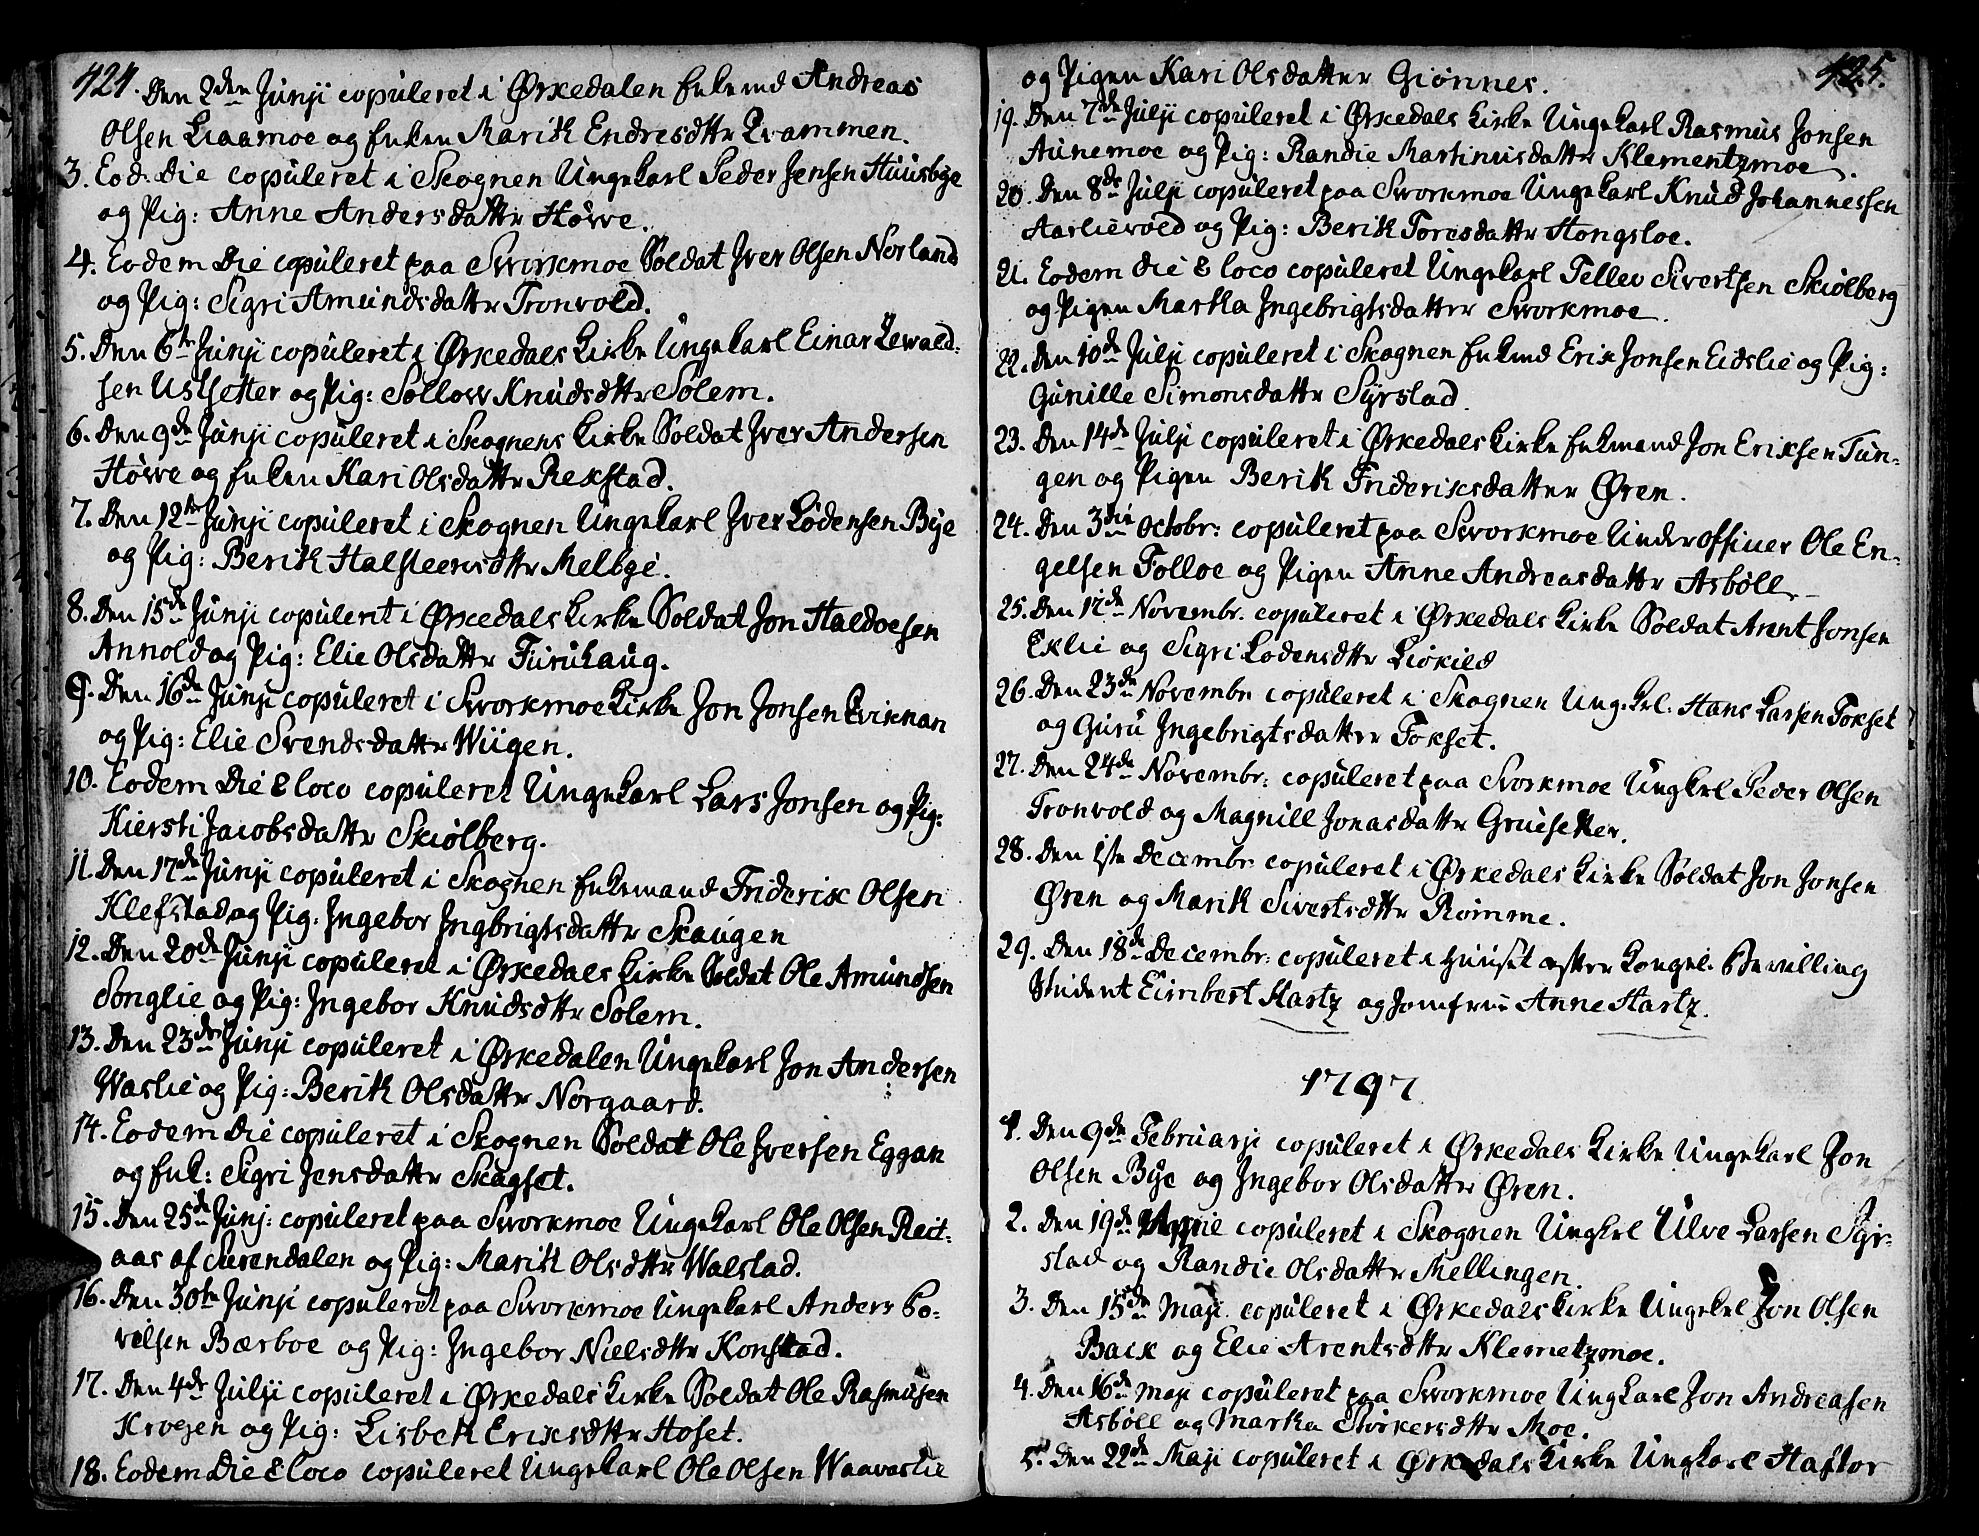 424. Den 2den Junji copuleret i Ørkedalen Enkemd Andreas
Olsen Liaamoe og Enken Marith Endresdttr Qvammen.
3. Eod. Die copuleret i Skognen Ungekarl Peder Jensen Huusbye
og Pig: Anne Andersdattr Høwe.
4. Eodem Die copuleret paa Sworkmoe Soldat Iver Olsen Norland
og Pig: Sigri Amundsdattr Tronvold.
5. Den 6te Junji copuleret i Ørkedals Kirke Ungekarl Einar Lewald:
sen Ustsetter og Pig: Sollow Knudsdttr Solem.
6. Den 9de Junji copuleret i Skognens Kirke Soldat Iver Andersen
Høwe og Enken Kari Olsdattr Rekstad.
7. Den 12te Junji copuleret i Skognen Ungekarl Iver Lodensen Bye
og Pig: Berith Halsteensdttr Melbye.
8. Den 15de Junji copuleret i Ørkedals Kirke Soldat Jon Haldoesen
Annold og Pig: Elie Olsdattr Furuhaug.
9. Den 16de Junji copuleret i Sworkmoe Kirke Jon Jonsen Qviknan
og Pig: Elie Svendsdattr Wiigen.
10. Eodem Die & loco copuleret Ungekarl Lars Jonsen og Pig:
Kiersti Jacobsdattr Skiølberg.
11. Den 17de Junji copuleret i Skognen Enkemand Friderik Olsen
Klefstad og Pig: Ingebor Ingbrigtsdattr Skaugen
12. Den 20de Junji copuleret i Ørkedals Kirke Soldat Ole Amundsen
Songlie og Pig: Ingebor Knudsdttr Solem.
13. Den 23de Junji copuleret i Ørkedalen Ungekarl Jon Andersen
Waslie og Pig: Berith Olsdattr Norgaard.
14. Eodem Die copuleret i Skognen Soldat Ole Iversen Eggan
og Enk: Sigri Jensdattr Skagset.
15. Den 25de Junj: copuleret paa Sworkmoe Ungekarl Ole Olsen Reit:
aas af Surendalen og Pig: Marith Olsdttr Walstad.
16. Den 30te Junji copuleret paa Sworkmoe Ungekarl Anders Bo-
velsen Bærboe og Pig: Ingebor Nielsdttr Konstad.
17. Den 4de Julji copuleret i Ørkedals Kirke Soldat Ole Rasmusen
Krogen og Pig: Lisbeth Eriksdttr Hoset.
18. Eodem Die & loco copuleret Ungekarl Ole Olsen Waavaslie
425.
og Pigen Kari Olsdatter Giønnes.
19. Den 7de Julji copuleret i Ørkedals Kirke Ungekarl Rasmus Jonsen
Aunemoe og Pig: Randie Martinusdattr Klementzmoe.
20. Den 8de Julji copuleret paa Sworkmoe Ungekarl Knud Johannessen
Aarlievold og Pig: Berith Toresdattr Hongsloe.
21. Eodem die & loco copuleret Ungekarl Tellev Sivertsen Skiølberg
og Pigen Martha Ingebrigtsdatter Sworkmoe.
22. Den 10de Julji copuleret i Skognen Enkemd Erik Jonsen Eidslie og Pig:
Gunille Simonsdattr Syrstad.
23. Den 14de Julji copuleret i Ørkedals Kirke Enkemand Jon Eriksen Tun-
gen og Pigen Berith Frideriksdatter Øren.
24. Den 3die Octobr: copuleret paa Sworkmoe Underofficer Ole En-
gelsen Folloe og Pigen Anne Andreasdattr Asbøll.
25. Den 17de Novembr. copuleret i Ørkedals Kirke Soldat Arent Jonsen
Eklie og Sigri Lodensdttr Liøkild
26. Den 23de Novembr copuleret i Skognen Ung.krl. Hans Larsen Fokset
og Guru Ingebrigtsdatter Fokset.
27. Den 24de Novembr: copuleret paa Sworkmoe Ungkrl Peder Olsen
Tronvold og Magnill Jonasdattr Gruesetter.
28. Den 1ste Decembr copuleret i Ørkedals Kirke Soldat Jon Jonsen
Øren og Marith Sivertsdttr Romme.
29. Den 18de Decembr: copuleret i Huuset efter Kongel. Bevilling
Student Eimbert Hartz og Jomfrue Anne Hartz.
1797
1. Den 9de Februarji copuleret i Ørkedals Kirke Ungekarl Jon
Olsen Bye og Ingebor Olsdattr Øren.
2. Den 19de copuleret i Skognen Ungkrl Ulve Larsen Syr-
stad og Randie Olsdattr Mellingen.
3. Den 15de Maji copuleret i Ørkedals Kirke Ungekrl Jon Olsen
Back og Elie Arentsdttr Klemetzmoe.
4. Den 16de Maji copuleret paa Sworkmoe Ungkarl Jon Andreasen
Asbøll og Martha Storkersdttr Moe.
5. Den 22de Maji copuleret i Ørkedals Kirke Ungkarl Haftor